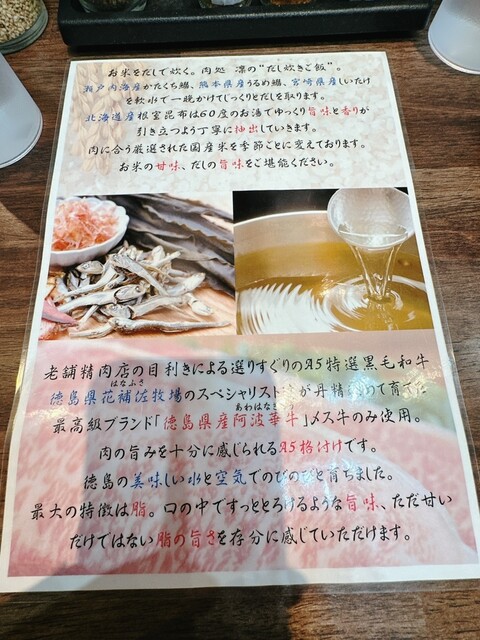 お米をだしで炊く。肉処 凛の"だし炊きご飯"。
瀬戸内海産かたくち鰯、熊本県産うるめ鰯、宮崎県産しいたけ
を軟水で一晩かけてじっくりとだしを取ります。
北海道産根室昆布は60度のお湯でゆっくり旨味と香りが
引き立つよう丁寧に抽出していきます。
肉に合う厳選された国産米を季節ごとに変えております。
お米の甘味、だしの旨味をご堪能ください。
老舗精肉店の目利きによる選りすぐりのA5特選黒毛和牛
はなふさ
徳島県花補佐牧場のスペシャリスト が丹精 めて育て
あわはなぎゅう
最高級ブランド「徳島県産阿波華牛」メス牛のみ使用。
肉の旨みを十分に感じられるA5格付けです。
徳島の美味しい水と空気でのびのびと育ちました。
最大の特徴は脂。口の中ですっととろけるような旨味、ただ甘い
だけではない脂の旨さを存分に感じていただけます。